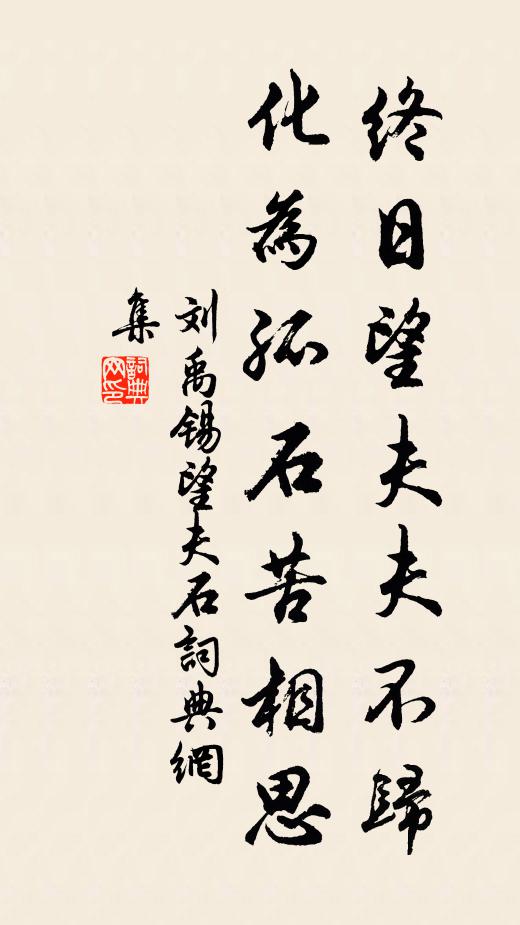 终日望夫夫不歸
化為孤石苦相思
刘禹锡望夫石詞典網
集
詞典网印